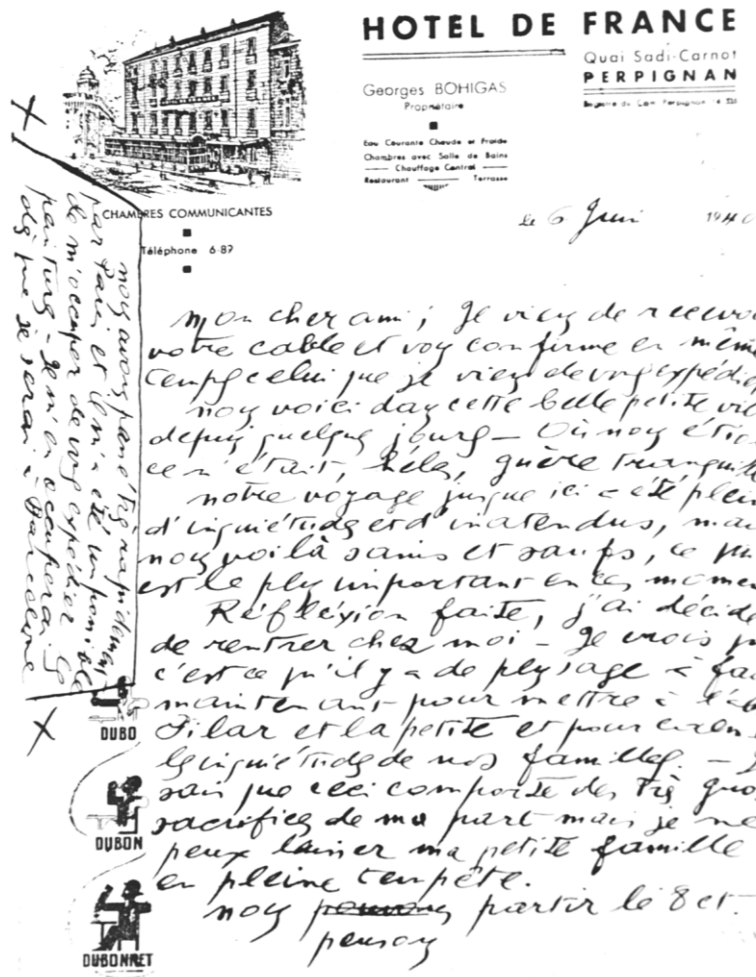 HOTEL DE FRANCE
Quai Sadi-Carnot
PERPIGNAN
Georges BOHIGAS
Propriétaire
Eau Courante Chaude et Froide
Chambres avec Salle de Bains
Chauffage Central
Restaurant Terrasse
CHAMBRES COMMUNICANTES
Téléphone 6-87
le 6 Juin 1940
mon cher ami; Je viens de recevoi
votre cable et vous confirme en mêm
temps celui que je viens de vous expédie
nous voici dans cette belle petite vi
depuis quelques jours — Où nous étio
ce n'était, hélas, guère tranquill
notre voyage jusque ici a été plein
d'inquiétudes et d'inatendus, mai
nous voilà sains et saufs, ce qui
est le plus important en ces momen
Réfléxion faite, j'ai décidé
de rentrer chez moi — Je crois qu
c'est ce qu'il y a de plus sage à fai
maintenant pour mettre à l'ab
Pilar et la petite et pour
les inquiétudes de nos familles. —
sais que ceci comporte des très gro
sacrifices de ma part mais je ne
peux laisser ma petite famille
en pleine tempête.
nous partir le 8 et
pensons
nous avons passé très rapidement
par Paris et il m'a été impossible
de m'occuper de vous expédier la
peinture — Je m'en occuperai
dès que je serai à Barcelone
DUBO
DUBON
DUBONNET